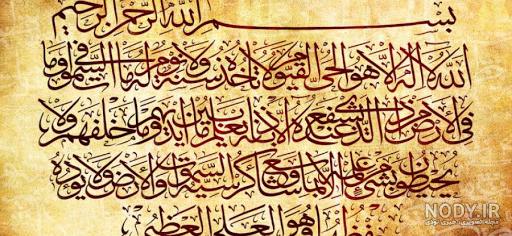 بسم الله الرحمن الرحيم
الله لا إله إلا هو الحي القيوم لا تأخذه سنة ولا نوم له ما في السموات وما
في الأرض من ذا الذي يشفع عنده إلا بإذنه يعلم ما بين أيديهم وما خلفهم ولا
يحيطون بشيء من علمه إلا بما شاء وسع كرسيه السموات والأرض ولا يؤده
حفظهما وهو العلي العظيم
NODY.IR